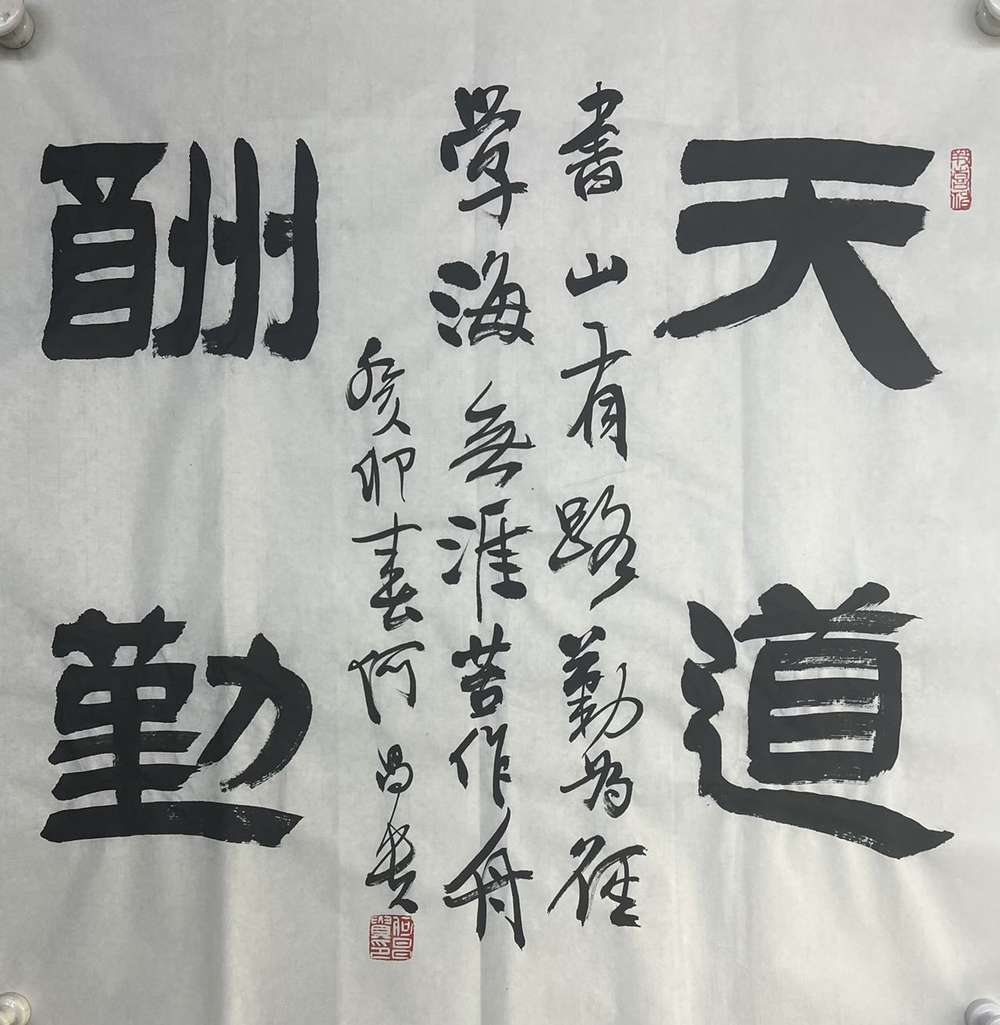 天道
書山有路勤為徑
學海無涯苦作舟
癸卯春何昌
酬勤